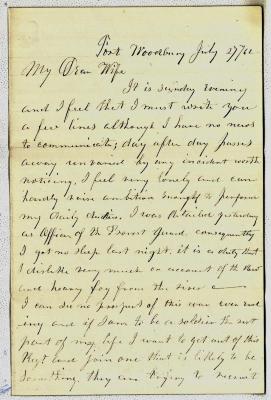 Fort Woodbury July 27/62
My Dear Wife
It is Sunday evening
and I feel that I must write you
a few lines although I have no news
to communicate; day after day passes
away unvaried by any incident worth
noticing. I feel very lonely and can
hardly raise ambition enough to perform
my daily duties. I was detailed yesterday
as Officer of the Guard, consequently
I got no sleep last night. it is a duty that
I dislike very much on account of the
and heavy fog from the river
I can see no prospect of this war ever
and if I am to be a soldier the
part of my life I want to get out of this
Regt and join one that is likely to be
something, they are trying to recruit